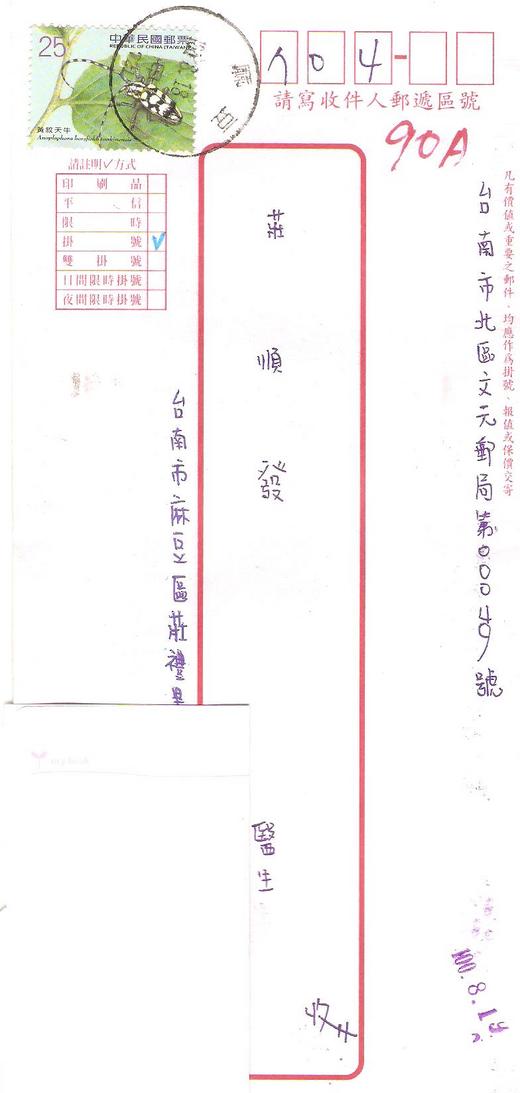 25
中華民國郵票
REPUBLIC OF CHINA (TAIWAN)
黃紋天牛
704-
請寫收件人郵遞區號
90A
請註明✓方式
印刷品
平信
限時
掛號 ✓
雙掛號
日間限時掛號
夜間限時掛號
凡有價值或重要之郵件、均應作為掛號、報值或保價交寄
台南市北區文元郵局第00049號
莊順發
醫生
收
台南市麻豆區莊禮里
100.8.19